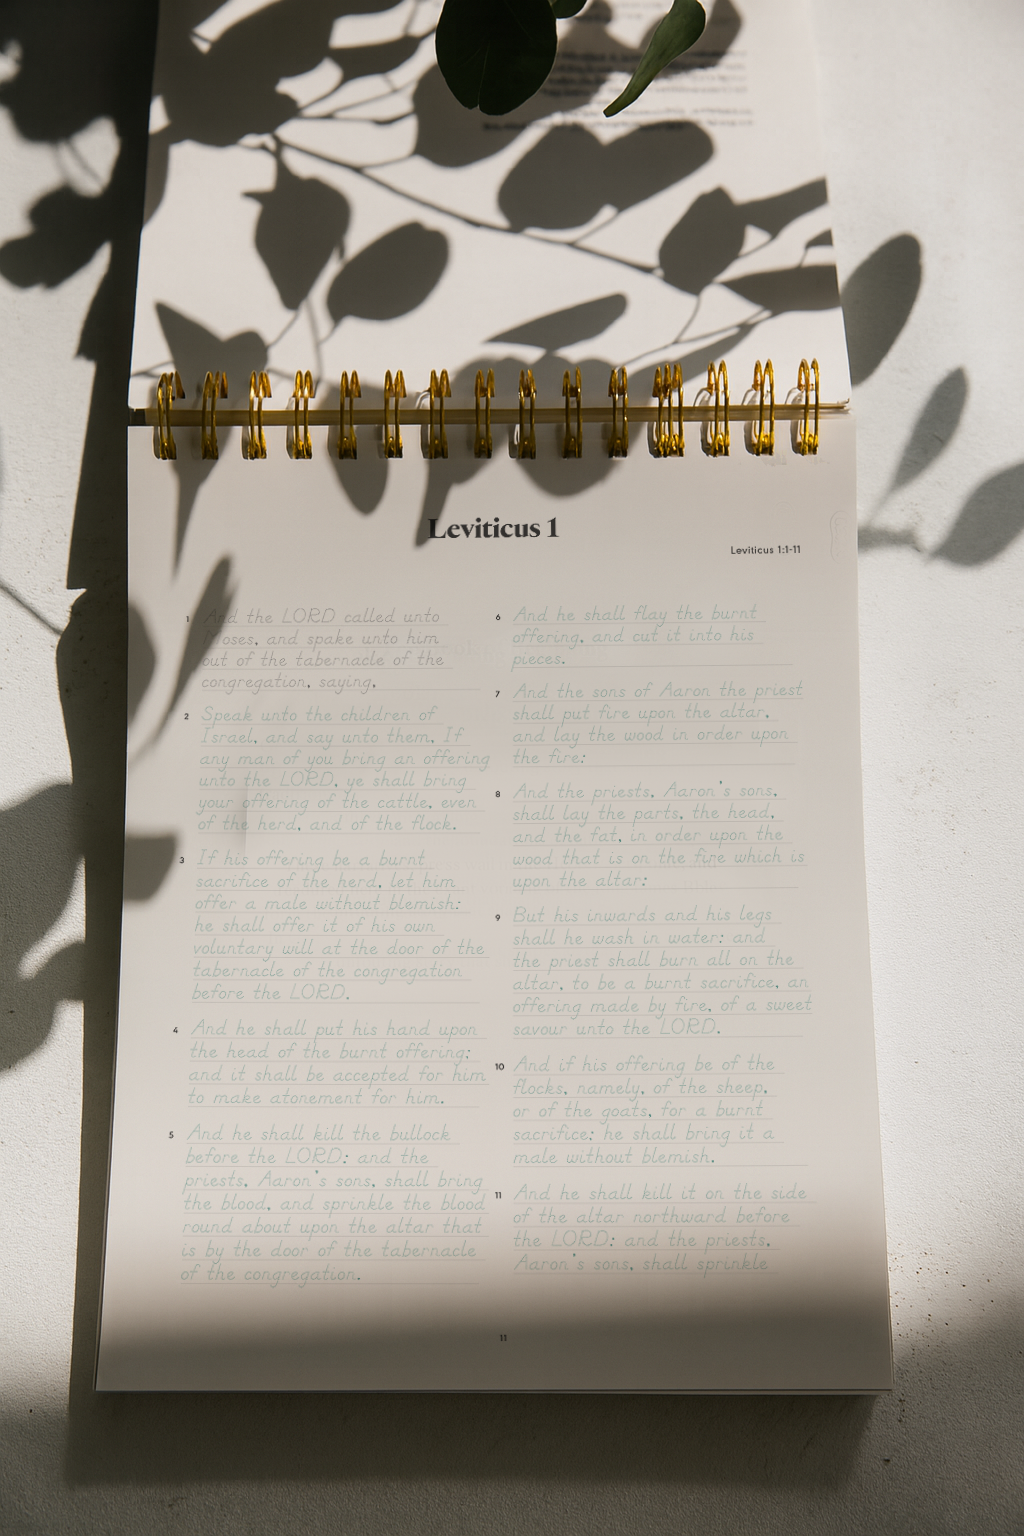 Leviticus 1
Leviticus 1:1-11
1 And the LORD called unto
Moses, and spake unto him
out of the tabernacle of the
congregation, saying,
2 Speak unto the children of
Israel, and say unto them, If
any man of you bring an offering
unto the LORD, ye shall bring
your offering of the cattle, even
of the herd, and of the flock.
3 If his offering be a burnt
sacrifice of the herd, let him
offer a male without blemish:
he shall offer it of his own
voluntary will at the door of the
tabernacle of the congregation
before the LORD.
4 And he shall put his hand upon
the head of the burnt offering;
and it shall be accepted for him
to make atonement for him.
5 And he shall kill the bullock
before the LORD: and the
priests, Aaron's sons, shall bring
the blood, and sprinkle the blood
round about upon the altar that
is by the door of the tabernacle
of the congregation.
6 And he shall flay the burnt
offering, and cut it into his
pieces.
7 And the sons of Aaron the priest
shall put fire upon the altar,
and lay the wood in order upon
the fire:
8 And the priests, Aaron's sons,
shall lay the parts, the head,
and the fat, in order upon the
wood that is on the fire which is
upon the altar:
9 But his inwards and his legs
shall he wash in water: and
the priest shall burn all on the
altar, to be a burnt sacrifice, an
offering made by fire, of a sweet
savour unto the LORD.
10 And if his offering be of the
flocks, namely, of the sheep,
or of the goats, for a burnt
sacrifice; he shall bring it a
male without blemish.
11 And he shall kill it on the side
of the altar northward before
the LORD: and the priests,
Aaron's sons, shall sprinkle
11